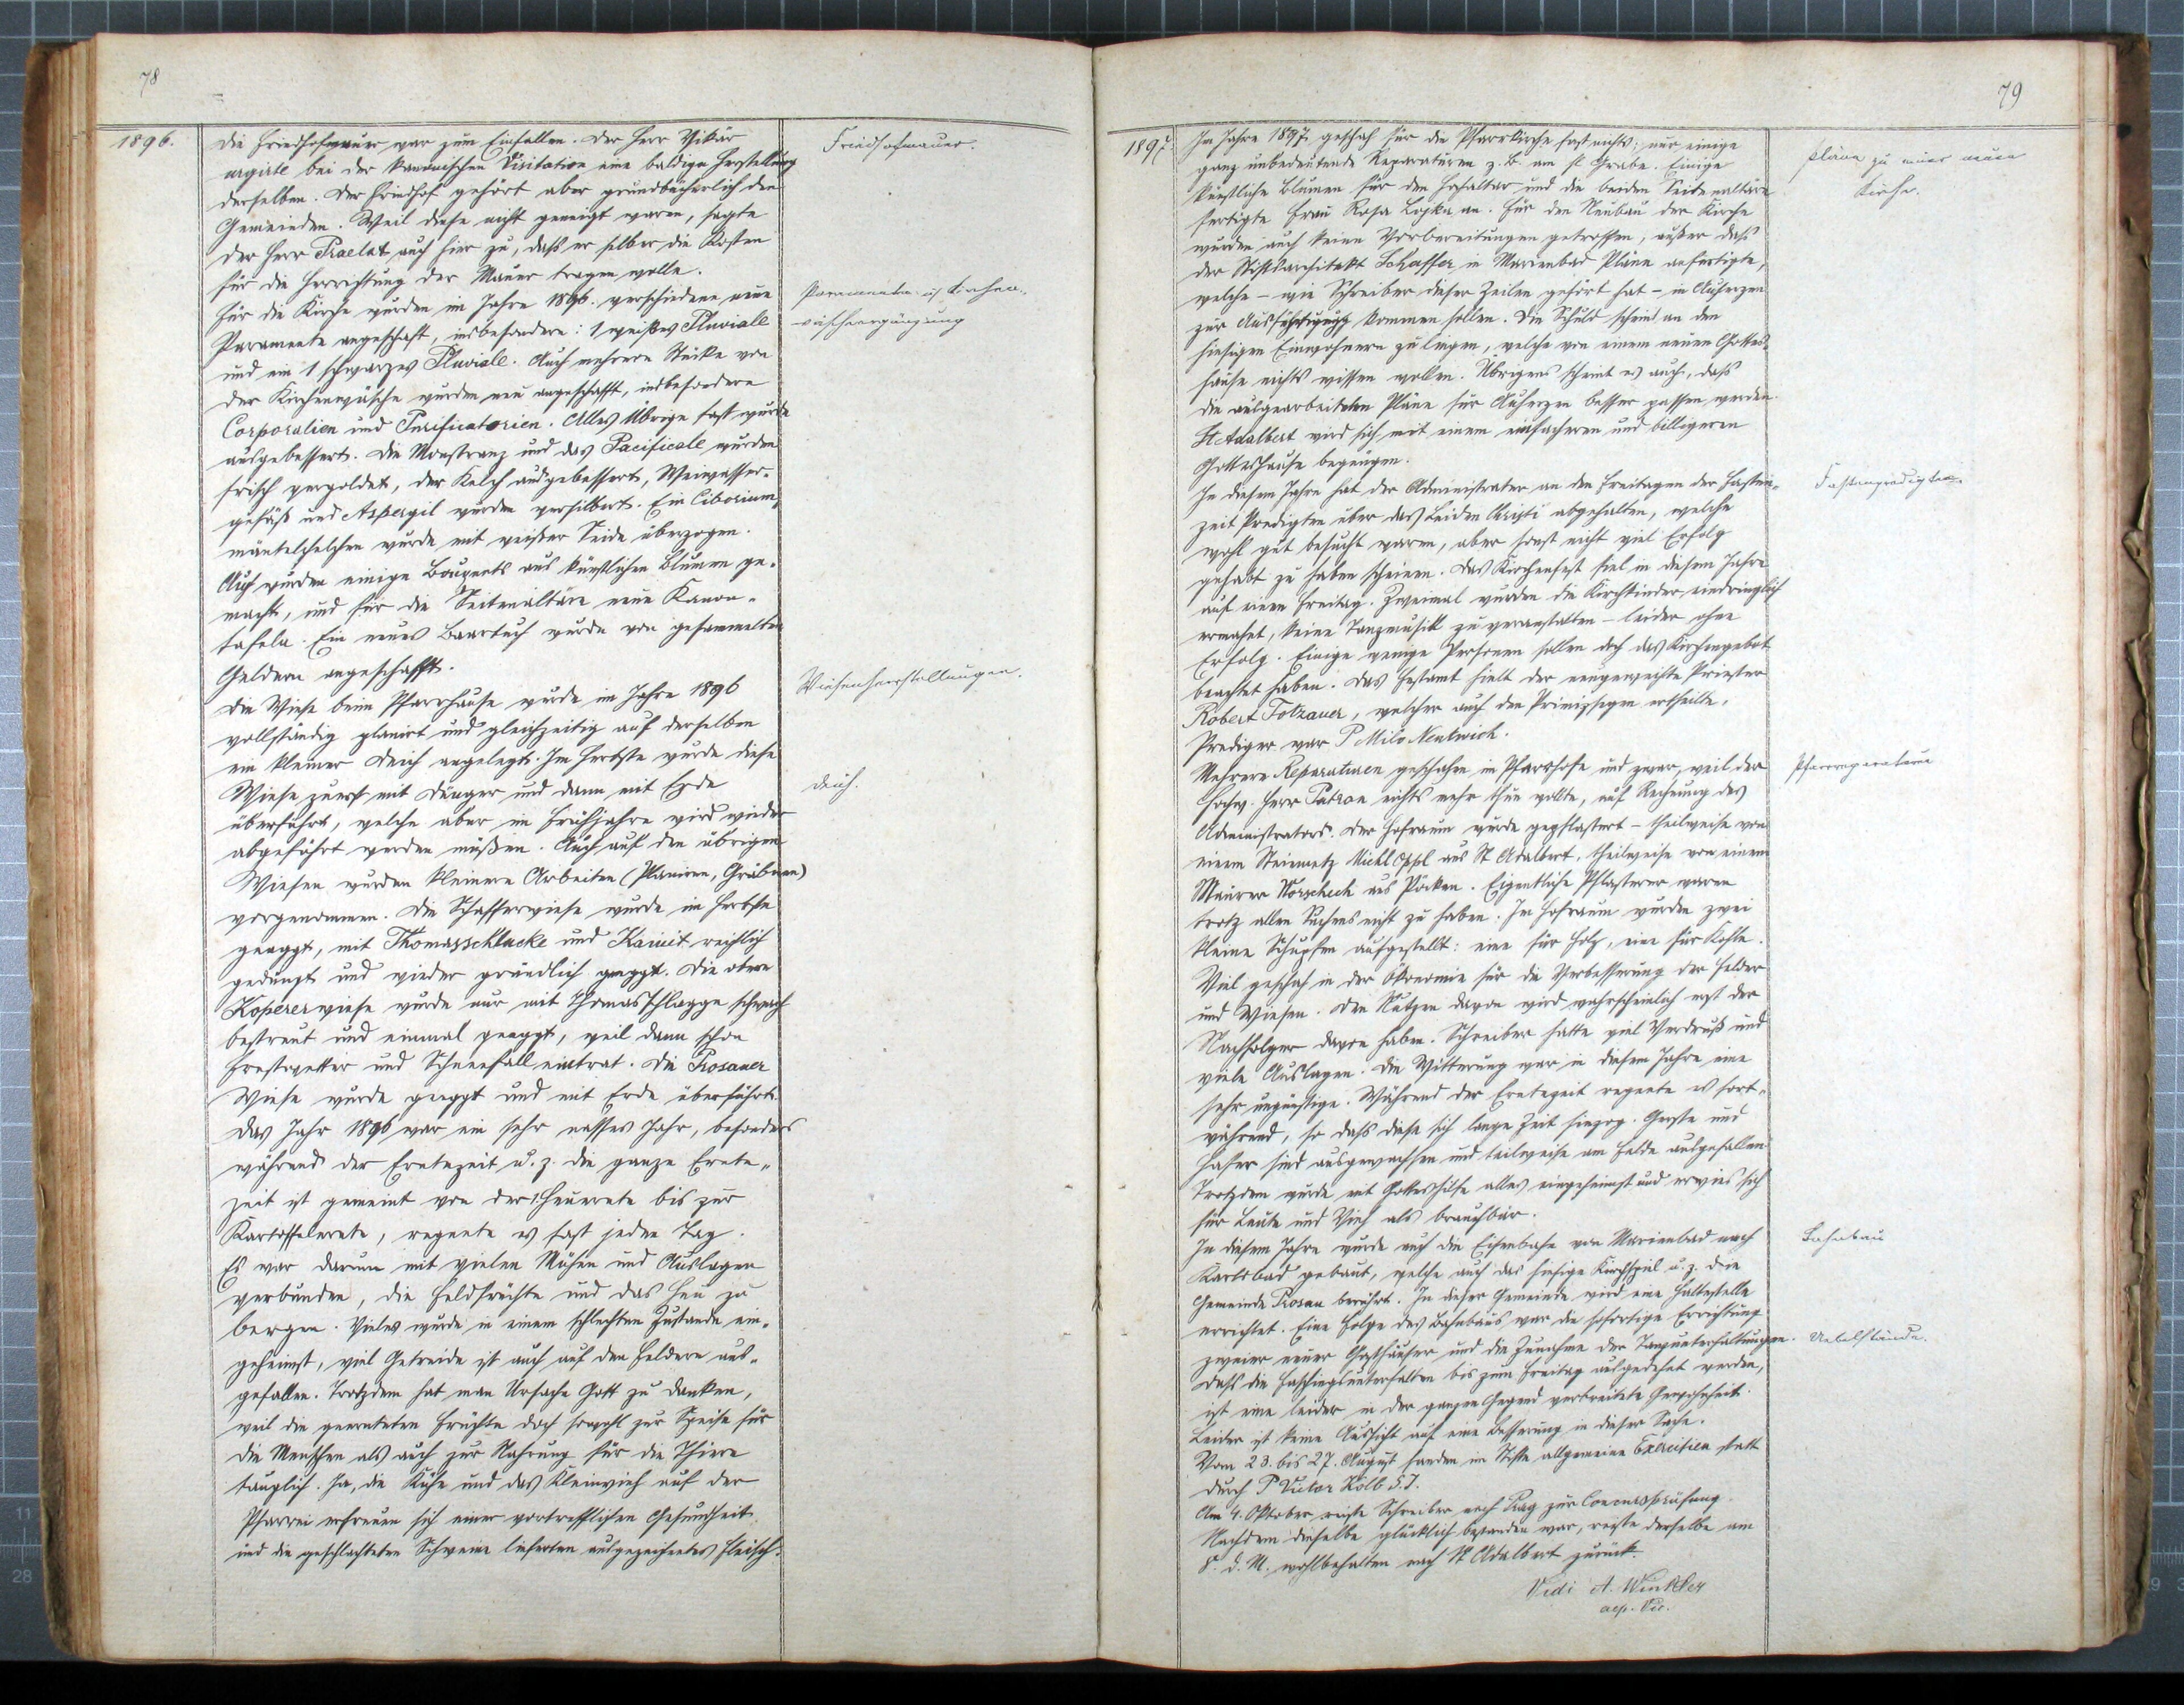 78
1896.
Die Friedhofmauer war zum Einfallen. Der Herr Vikär
urgirte bei der kanonischen Visitation eine baldige Herstellung
derselben. Der Friedhof gehört aber grundbücherlich den
Gemeinden. Weil diese nicht geneigt waren, sagte
der Herr Praelat auch hier zu, daß er selber die Kosten
für die Herrichtung der Mauer tragen wolle.
Für die Kirche wurden im Jahre 1896. verschiedene neue
Paramente angeschaft, insbesondere: 1 weißes Pluviale
und ein 1 schwarzes Pluviale. Auch mehrere Stücke von
der Kirchenwäsche wurden neu angeschafft, insbesondere
Corporalien und Purificatorien. Alles Übrige fast wurde
ausgebessert. Die Monstranz und das Pacificale wurden
frisch vergoldet, der Kelch ausgebessert, Weiwasser-
gefäß und Aspergil wurden versilbert. Ein Ciborium
mäntelchelchen wurde mit weißer Seide überzogen.
Auch wurden einige Bouquets aus künstlichen Blumen ge-
macht, und für die Seitenaltäre neue Kanon-
tafeln. Ein neues Baartuch wurde von gesammelten
Geldern angeschafft.
Die Wiese beim Pfarrhause wurde im Jahre 1896
vollständig planirt und gleichzeitig auf derselben
ein kleiner Deich angelegt. Im Herbste wurde diese
Wiese zuerst mit Dünger und dann mit Erde
überführt, welche aber im Frühjahre wird wieder
abgeführt werden müßen. Auch auf den übrigen
Wiesen wurden kleinere Arbeiten (Planiren, Gräben)
vorgenommen. Die Schafferwiese wurde im Herbste
geeggt, mit Thomasschlacke und Kainit reichlich
gedüngt und wieder gründlich geeggt. Die obere
Kopererwiese wurde nur mit Thomasschlagge schwach
bestreut und einmal geeggt, weil dann schon
Frostwetter und Schneefall eintrat. Die Prosauer
Wiese wurde geeggt und mit Erde überführt.
Das Jahr 1896 war ein sehr nasses Jahr, besonders
während der Erntezeit u. z. die ganze Ernte-
zeit ist gemeint von der 1. Heuernte bis zur
Kartoffelernte, regnete es fast jeden Tag.
Es war darum mit vielen Mühen und Auslagen
verbunden, die Feldfrüchte und das Heu zu
bergen. Vieles wurde in einem schlechten Zustande ein-
geheimst, viel Getreide ist auch auf den Feldern aus-
gefallen. Trotzdem hat man Ursache Gott zu danken,
weil die geernteten Früchte doch sowohl zur Speise für
die Menschen als auch zur Nahrung für die Thiere
tauglich. Ja, die Kühe und das Kleinvieh auf der
Pfarrei erfreuen sich einer vortrefflichen Gesundheit
und die geschlachteten Schweine lieferten ausgezeichnetes Fleisch.
Friedhofmauer.
Paramente u Kirchen-
wäscheergänzung
Wiesenherstellungen.
Deich.
79
1897.
Im Jahre 1897. geschah für die Pfarrkirche fast nichts; nur einige
ganz unbedeutende Reparaturen z. B. am hl Grabe. Einige
künstliche Blumen für den Hochaltar und die beiden Seitenaltäre
fertigte Frau Rosa Lojka an. Für den Neubau der Kirche
wurden auch keine Vorbereitungen getroffen, außer daß
der Stiftsarchitekt Schaffer in Marienbad Pläne anfertigte,
welche – wie Schreiber dieser Zeilen gehört hat – in Auherzen
zur Ausführung kommen sollen. Die Schuld scheint an den
hiesigen Einwohnern zu liegen, welche von einem neuen Gottes-
hause nichts wissen wollen. Übrigens scheint es auch, daß
die ausgearbeiteten Pläne für Auherzen besser passen werden.
St Adalbert wird sich mit einem einfacheren und billigeren
Gotteshause begnügen.
In diesem Jahre hat der Administrator an den Freitagen der Fasten-
zeit Predigten über das Leiden Christi abgehalten, welche
wohl gut besucht waren, aber sonst nicht viel Erfolg
gehabt zu haben scheinen. Das Kirchenfest fiel in diesem Jahre
auf einen Freitag. Zweimal wurden die Kirchkinder eindringlich
ermahnt, keine Tanzmusik zu veranstalten – leider ohne
Erfolg. Einige wenige Personen sollen doch das Kirchengebot
beachtet haben. Das Festamt hielt der neugeweihte Priester
Robert Totzauer, welcher auch den Primizsegen ertheilte.
Prediger war P Milo Nentwich.
Mehrere Reparaturen geschahen im Pfarrhofe und zwar, weil der
hochw. Herr Patron nichts mehr thun wollte, auf Rechnung des
Administrators. Der Hofraum wurde gepflastert – theilweise von
einem Steinmetz Michl Oppl aus St Adalbert, theilweise von einem
Maurer Worschech aus Pöcken. Eigentliche Pflasterer waren
trotz allen Suchens nicht zu haben. Im Hofraum wurden zwei
kleine Schupfen aufgestellt: eine für Holz, eine für Kohle.
Viel geschah in der Ökonomie für die Verbesserung der Felder
und Wiesen. Den Nutzen davon wird wahrscheinlich erst der
Nachfolger davon haben. Schreiber hatte viel Verdruß und
viele Auslagen. Die Witterung war in diesem Jahre eine
sehr ungünstige. Während der Erntezeit regnete es fort-
während, so daß diese sich lange Zeit hinzog. Gerste und
Hafer sind ausgewachsen und teilweise am Felde ausgefallen
Trotzdem wurde mit Gotteshilfe alles eingeheimst und erwies sich
für Leute und Vieh als brauchbar.
In diesem Jahre wurde auch die Eisenbahn von Marienbad nach
Karlsbad gebaut, welche auch das hiesige Kirchspiel u. z. die
Gemeinde Prosau berührt. In dieser Gemeinde wird eine Haltestelle
errichtet. Eine Folge des Bahnbaus war die sofortige Errichtung
zweier neuer Gasthäuser und die Zunahme der Tanzunterhaltungen.
Daß die Faschingsunterhalten bis zum Freitag ausgedehnt werden,
ist eine leider in der ganzen Gegend verbreitete Gewohnheit.
Leider ist keine Aussicht auf eine Besserung in dieser Sache.
Vom 23. bis 27. August fanden im Stifte allgemeine Exercitien statt
durch P Victor Kolb S. J.
Am 4. Oktober reiste Schreiber nach Prag zur Concursprüfung.
Nachdem dieselbe glücklich bestanden war, reiste derselbe am
8. d. M. wohlbehalten nach St Adalbert zurück.
Vidi A. Winkler
aep. Vic.
Pläne zu einer neuen
Kirche.
Fastenpredigten
Pfarrreparaturen
Bahnbau
Uebelstände.